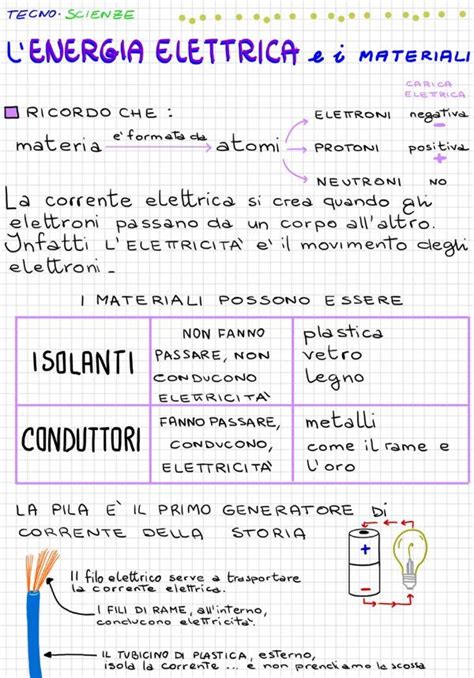 TECNO-SCIENZE
L'ENERGIA ELETTRICA e i MATERIALI
CARICA
ELETTRICA
RICORDO CHE :
ELETTRONI negativa
-
materia è formata da atomi PROTONI positiva
+
NEUTRONI NO
La corrente elettrica si crea quando gli
elettroni passano da un corpo all'altro.
Infatti L'ELETTRICITA' e' il movimento degli
elettroni -
I MATERIALI POSSONO ESSERE
ISOLANTI
NON FANNO
PASSARE, NON
CONDUCONO
ELETTRICITA'
plastica
vetro
legno
CONDUTTORI
FANNO PASSARE,
CONDUCONO,
ELETTRICITA'
metalli
come il rame e
l'oro
LA PILA E' IL PRIMO GENERATORE DI
CORRENTE DELLA STORIA
+
-
Il filo elettrico serve a trasportare
la corrente elettrica.
I FILI DI RAME, all'interno,
conducono elettricità.
IL TUBICINO DI PLASTICA, esterno,
isola la corrente ... e non prendiamo la scossa